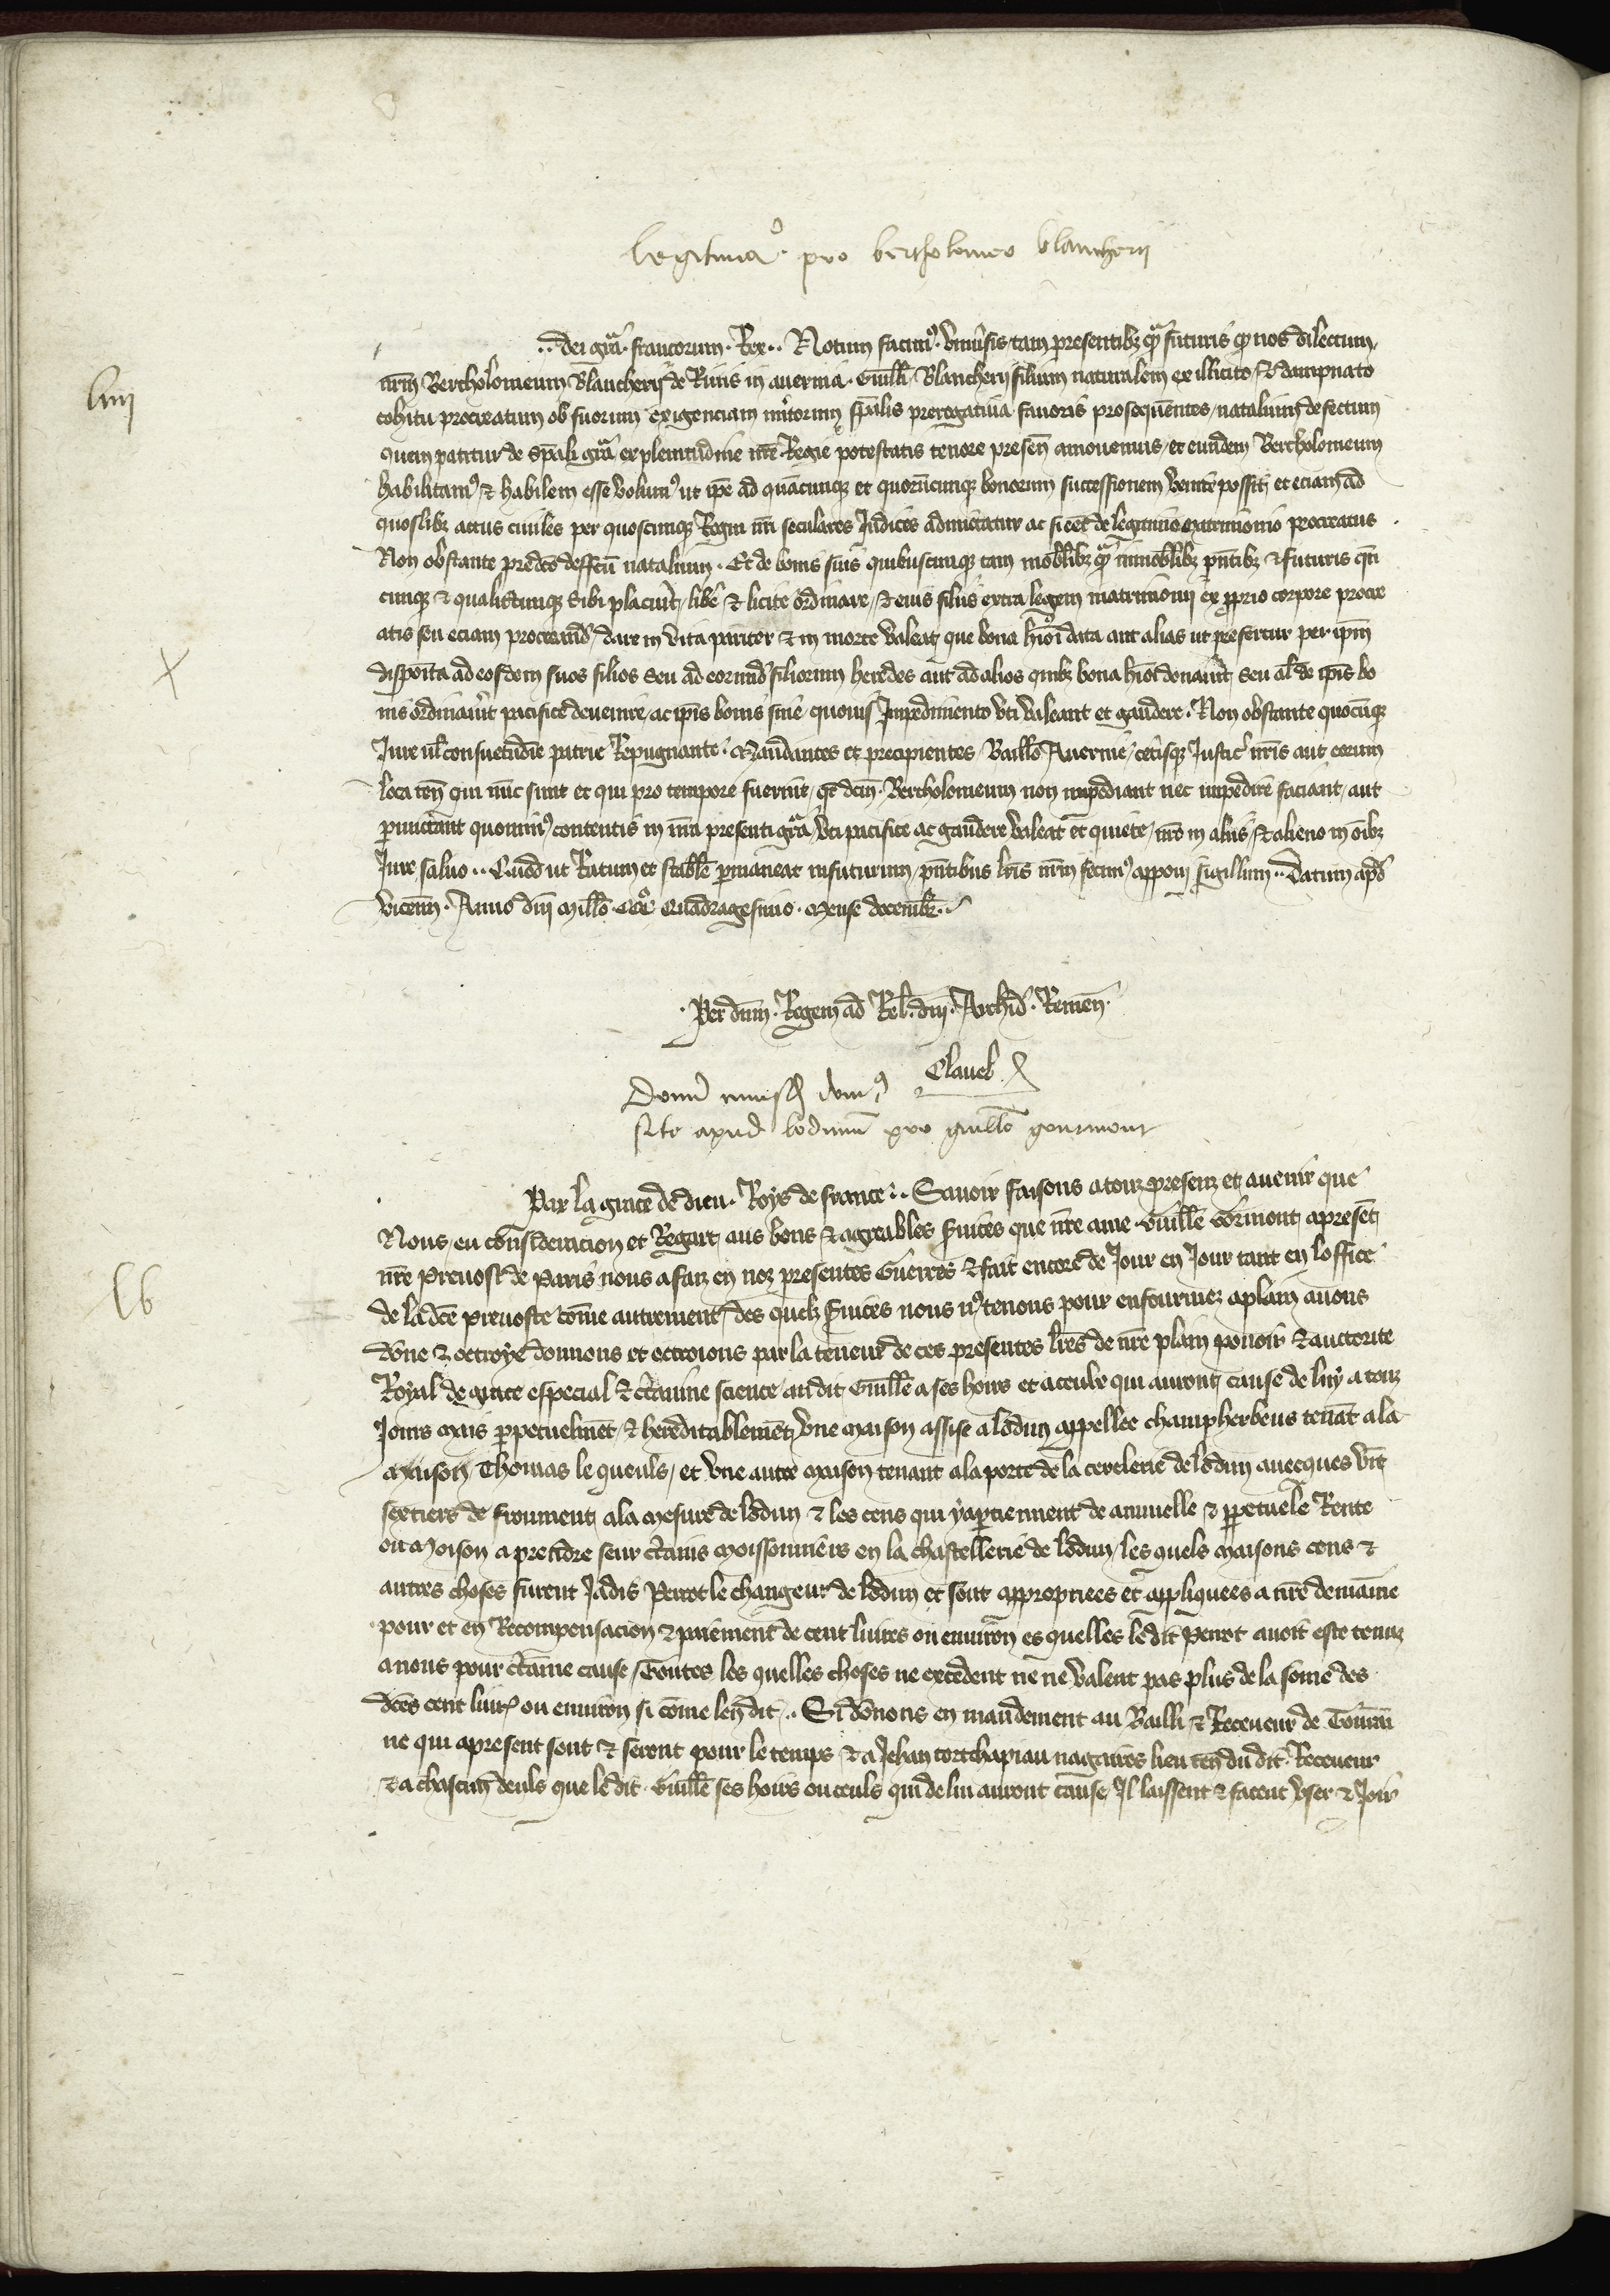 legitimaꝯ pro bertholomeo blancherii
.. dei gra. francorum. Rex.. Notum facimꝰ. vniusis tam presentibꝫ qͣ futuris qꝫ nos dilectum
liiii
nrm Bertholomeum Blancherii de Riuis in auernia. Guilli Blancherii filium naturalem ex illicito, & dampnato
cohitu procreatum ob suorum exigenciam mitorum spalis prerogatiua fauoris prosequentes, nataluim defectum
quem patitur de spali gra ex plenitudine nre Regie potestatis tenore presen amouemus, et eundem Bertholomeum
habilitamꝰ & habilem esse volumꝰ ut ipe ad quacunqꝫ et quorucunqꝫ bonorum successionem venire possit, et eciam ad
quoslibꝫ actus ciuiles per quoscunqꝫ Regni nri seculares Judices admittatur ac si eet de legitimo matrimonio procreatus
Non obstante predco deffcu natalium. Et de bonis suis quibuscunqꝫ tam mobilibꝫ qͣ immobilibꝫ pntibꝫ & futuris qn
cunqꝫ & qualitcunqꝫ sibi placuit, libe & licite ordinare, & eius filiis extra legem matrimonii ex pprio corpore procre
atis seu eciam procreand, dare in vita pariter & in morte valeat, que bona hmoi data aut alias ut prefertur per ipm
X
disposita ad eosdem suos filios seu ad eorund filiorum heredes aut ad alios quibꝫ bona hmoi donauit, seu al de ipis bo
nis ordinauit pacifice deuenire, ac ipis bonis sine quouis Impedimento vti valeant et gaudere. Non obstante quocunqꝫ
Jure ul consuetudie patrie Repugnante. Mandantes et precipientes Baillo Auernie, cetisqꝫ Justic nris aut eorum
loca ten qui nuc sunt et qui pro tempore fuerint, qt dcm. Bertholomeum non impediant nec impedire faciant, aut
pmictant quominꝰ contentis in nra presenti gra vti pacifice ac gaudere valeat et quiete, nro in aliis, & alieno in oibꝫ
Jure saluo.. Quod ut Ratum et stabile pmaneat in futurum, pntibus lris nrm fecimꝰ apponi sigillum.. Datum apd
vicenn. Anno dni millo. CCC° Quadragesimo. Mense decembr..
. Per dnm. Regem ad Rel. dni. Archid. Remen.
Clauel.
Donu cuiusd domꝰ
site apud lodunu pro guillo gourmont
Par la grace de dieu. Roys de france.. Sauoir faisons a touz presenz et auenir que
Nous, en consideracion et Regart, aus bons & aggreables suices que nre ame Guille Gormont, apresent,
lv
nre Preuost de Paris nous a faiz en noz presentes Guerres & fait encore de Jour en Jour tant en loffice
de la dce preuoste come autrement, des quelx suices nous nꝰ tenons pour enfourmez a plain auons
done & octroye donnons et octroions par la teneur de ces presentes lres de nre plain pouoir & auctorite
Royal de grace especial & ctainne science, audit Guille a ses hoirs et a ceulx qui auront cause de luy a touz
Jours mais ppetuelmet, & hereditablemet, vne maison assise a lodun appellee champherbeus tenat a la
maison Thomas le queuls, et vne autre maison tenant a la porte de la cerclerie de lodun auecques vit
sextiers de froument, a la mesure de lodun & les cens qui y aptiennent de annuelle & ppetuele Rente
ou Moison a prendre seur ctains moissonniers en la chastellerie de lodun, les quels maisons cens &
autres choses furent Jadis Perrot le changeur de lodun et sont appropriees et appliquees a nre demaine
pour et en Recompensacion & paiement de cent liures ou enuiron es quelles ledit Perrot auoit este tenuz
a nous pour ctaine cause, Toutes les quelles choses ne excedent ne ne valent pas plus de la some des
dces cent liures ou enuiron si come len dit.. Si donons en mandement au Bailli & Receueur de Tourai
ne qui apresent sont & seront pour le temps & a Jehan tortchapiau nagaires lieu ten du dit Receueur
& a chascun deuls que ledit Guille ses hoirs ou ceuls qui de lui auront cause, Il laissent & facent vser & Joir